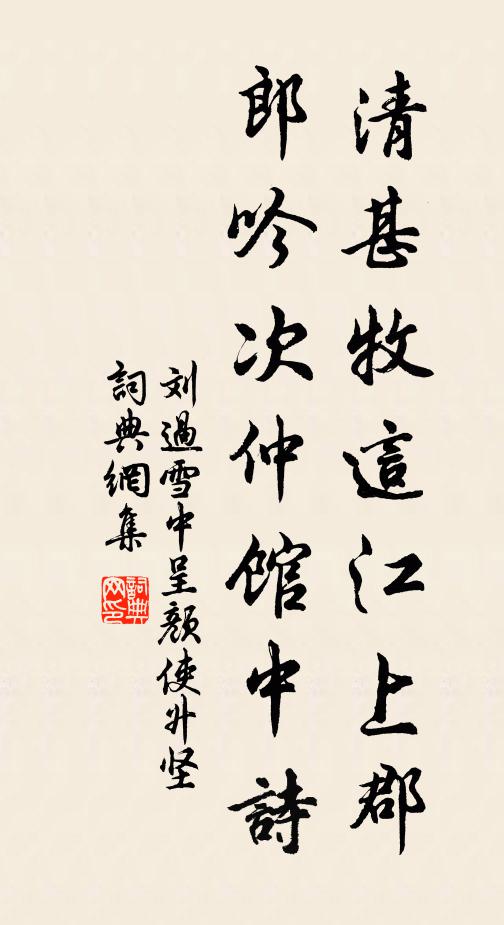 清甚牧這江上郡
郎吟次仲館中詩
刘過雪中呈顏使廾坚
詞典網集
詞典網印